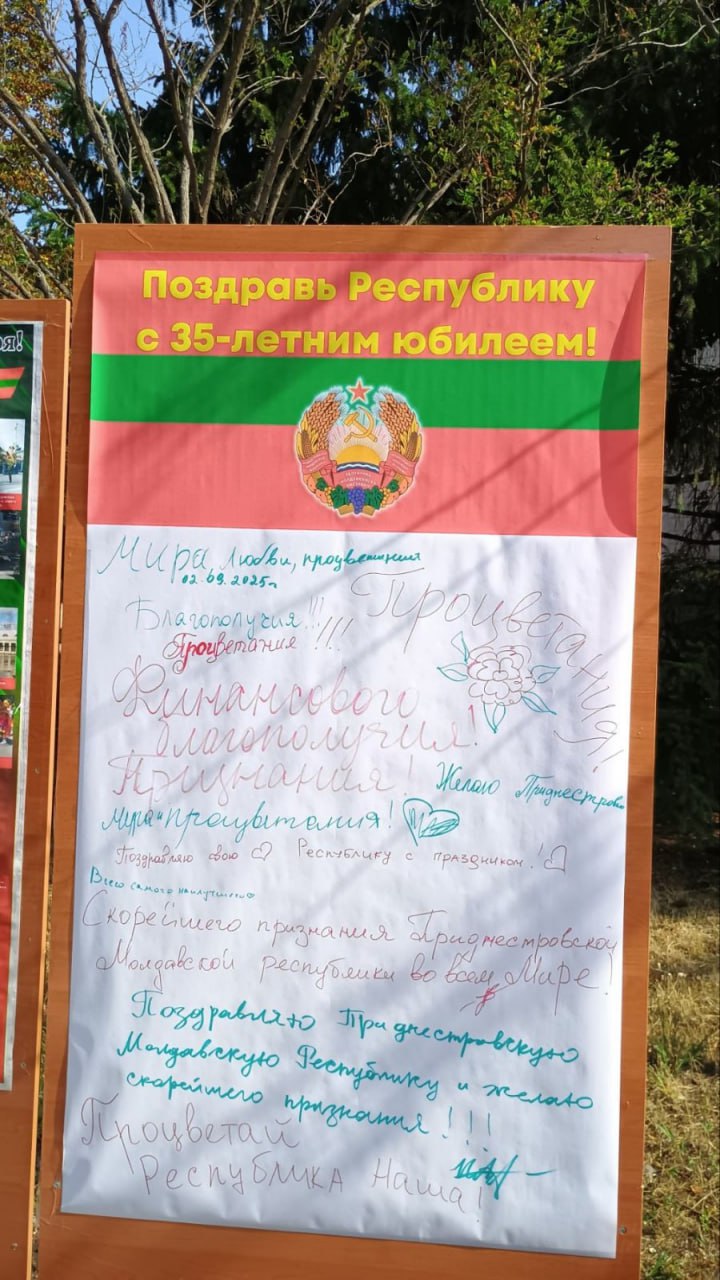 Поздравь Республику
с 35-летним юбилеем!
Мира, Любви, процветания
02.09.2025г
Процветания!
Благополучия!!!
Процветания !!!
Финансового
благополучия!
Признания!
Желаю Приднестровью
Мира и процвитания!
Поздравляю свою ♡ Республику с праздником!♡
Всего самого наилучшего
Скорейшего признания Приднестровской
Молдавской республики во всем Мире!
Поздравляю Приднестровскую
Молдавскую Республику и желаю
скорейшего признания!!!
Процветай
Республика Наша!